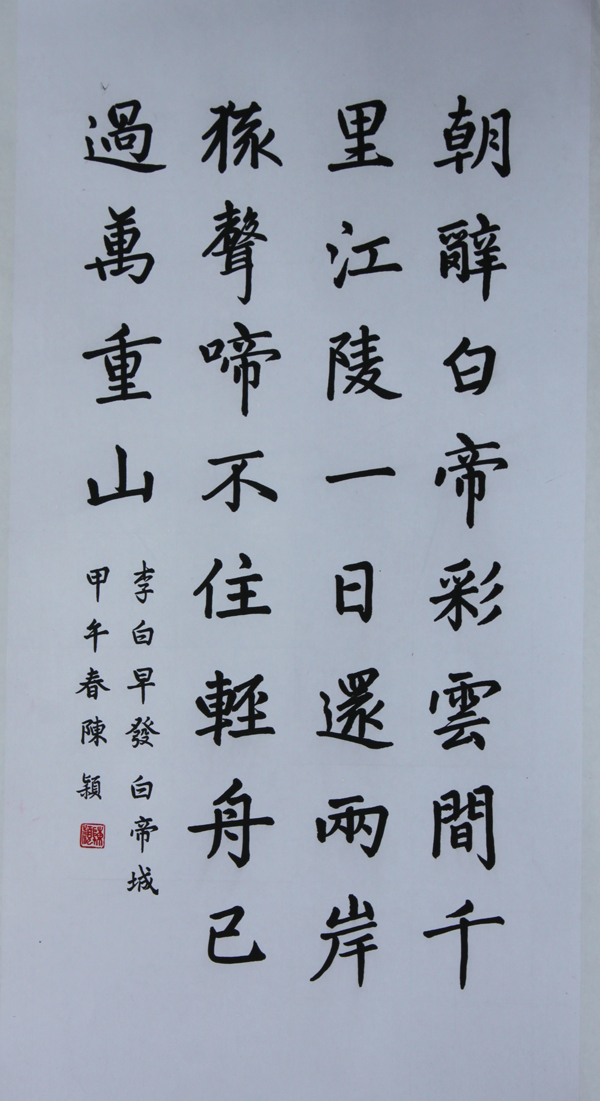 朝辭白帝彩雲間千
里江陵一日還兩岸
猿聲啼不住輕舟已
過萬重山
李白早發白帝城
甲午春陳穎